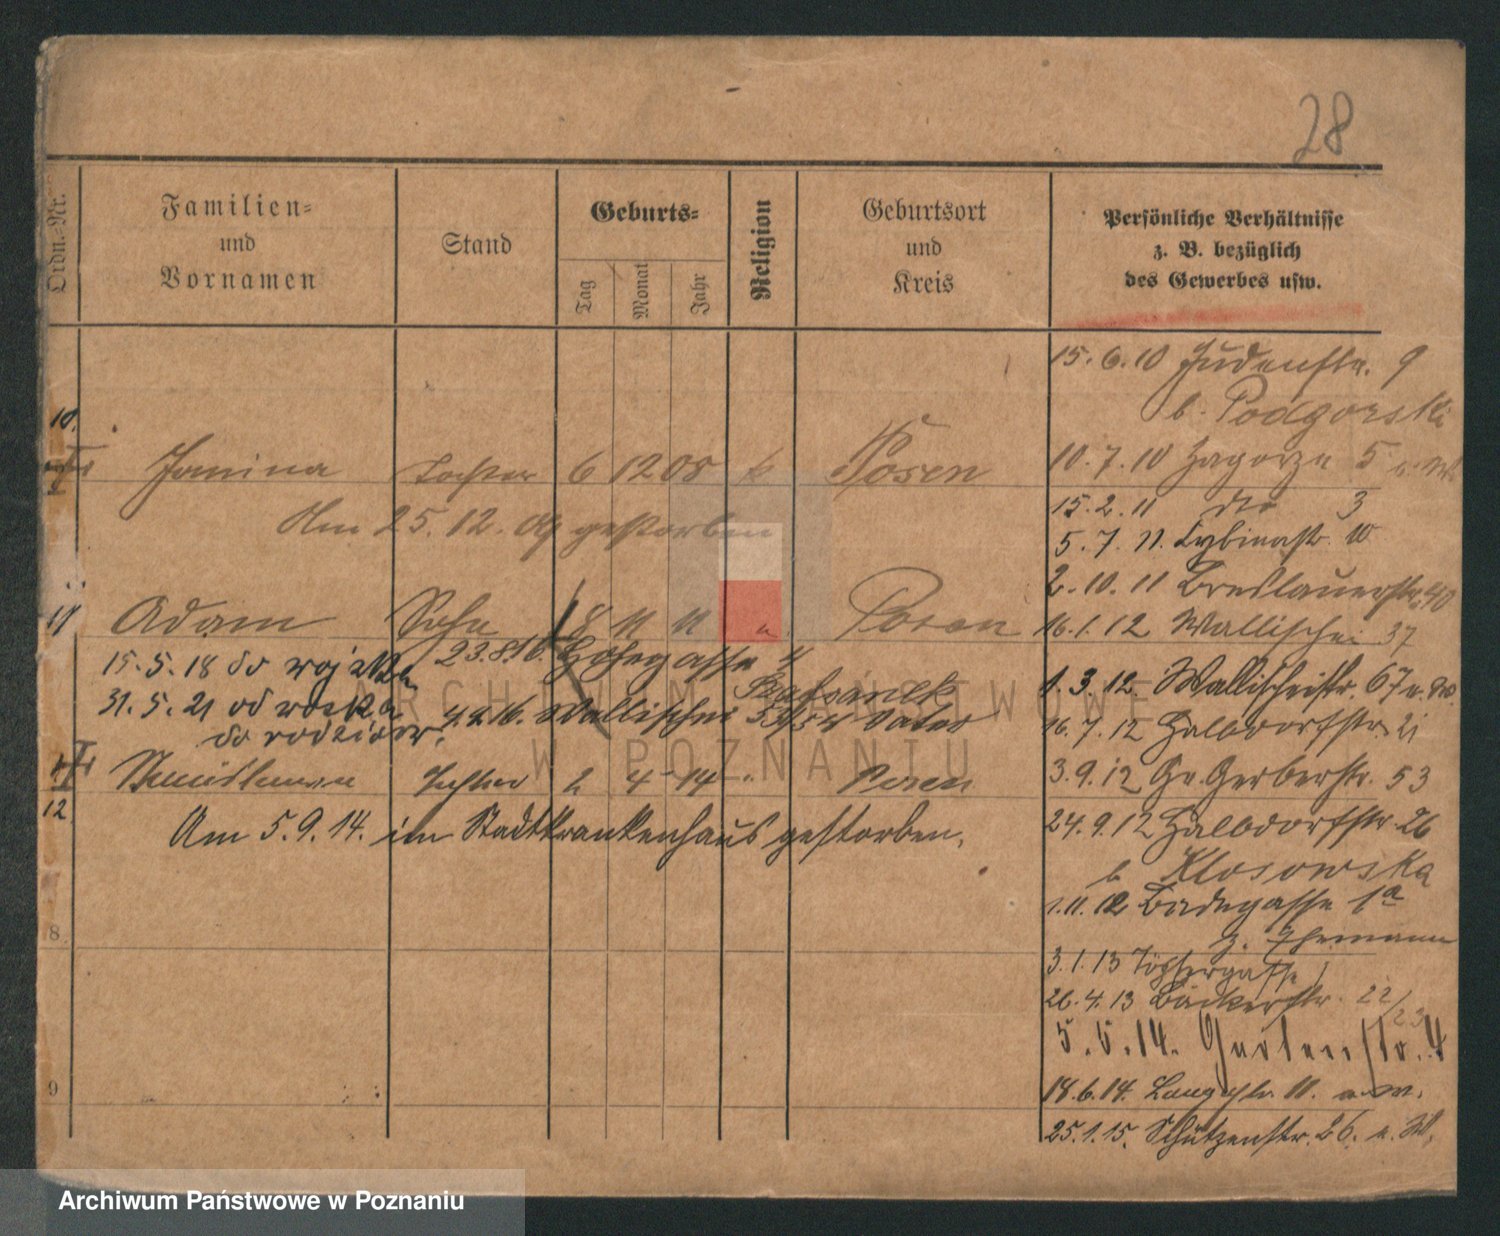 28
Ordn.-Nr.
Familien-
und
Vornamen
Stand
Geburts-
Tag
Monat
Jahr
Religion
Geburtsort
und
Kreis
Persönliche Verhältnisse
z. B. bezüglich
des Gewerbes usw.
15.6.10 Judenstr. 9
b. Podgorski
10.
Janina Tochter 6 12 08 k Posen
10.7.10 Zagorze 5
Am 25.12.09 gestorben
15.2.11 dto 3
5.7.11. Cybinastr. 10
2.10.11 Breslauerstr. 40
11 Adam Sohn 8 11 11 " Posen
16.1.12 Wallischei 37
15.5.18 do wojska
23.8.16. Hohegasse 4
1.3.12. Wallischeistr. 67
31.5.21 od wojska
4.4.16. Wallischei 53/54 Vater
do rodziców.
16.7.12 Halbdorfstr. 21
Tochter 2 4 14 " Posen
3.9.12 Gr. Gerberstr. 53
12
Am 5.9.14. im Stadtkrankenhaus gestorben.
24.9.12 Halbdorfstr. 26
b. Klosowska
1.11.12 Badegasse 1a
8
z. Ehemann
3.1.13 Töpfergasse 1
26.4.13 Bäckerstr. 22/23
5.5.14. Gartenstr. 4
9
18.6.14. Langestr. 11.
25.1.15. Schützenstr. 26. a. W.
ARCHIWUM PAŃSTWOWE
W POZNANIU
Archiwum Państwowe w Poznaniu